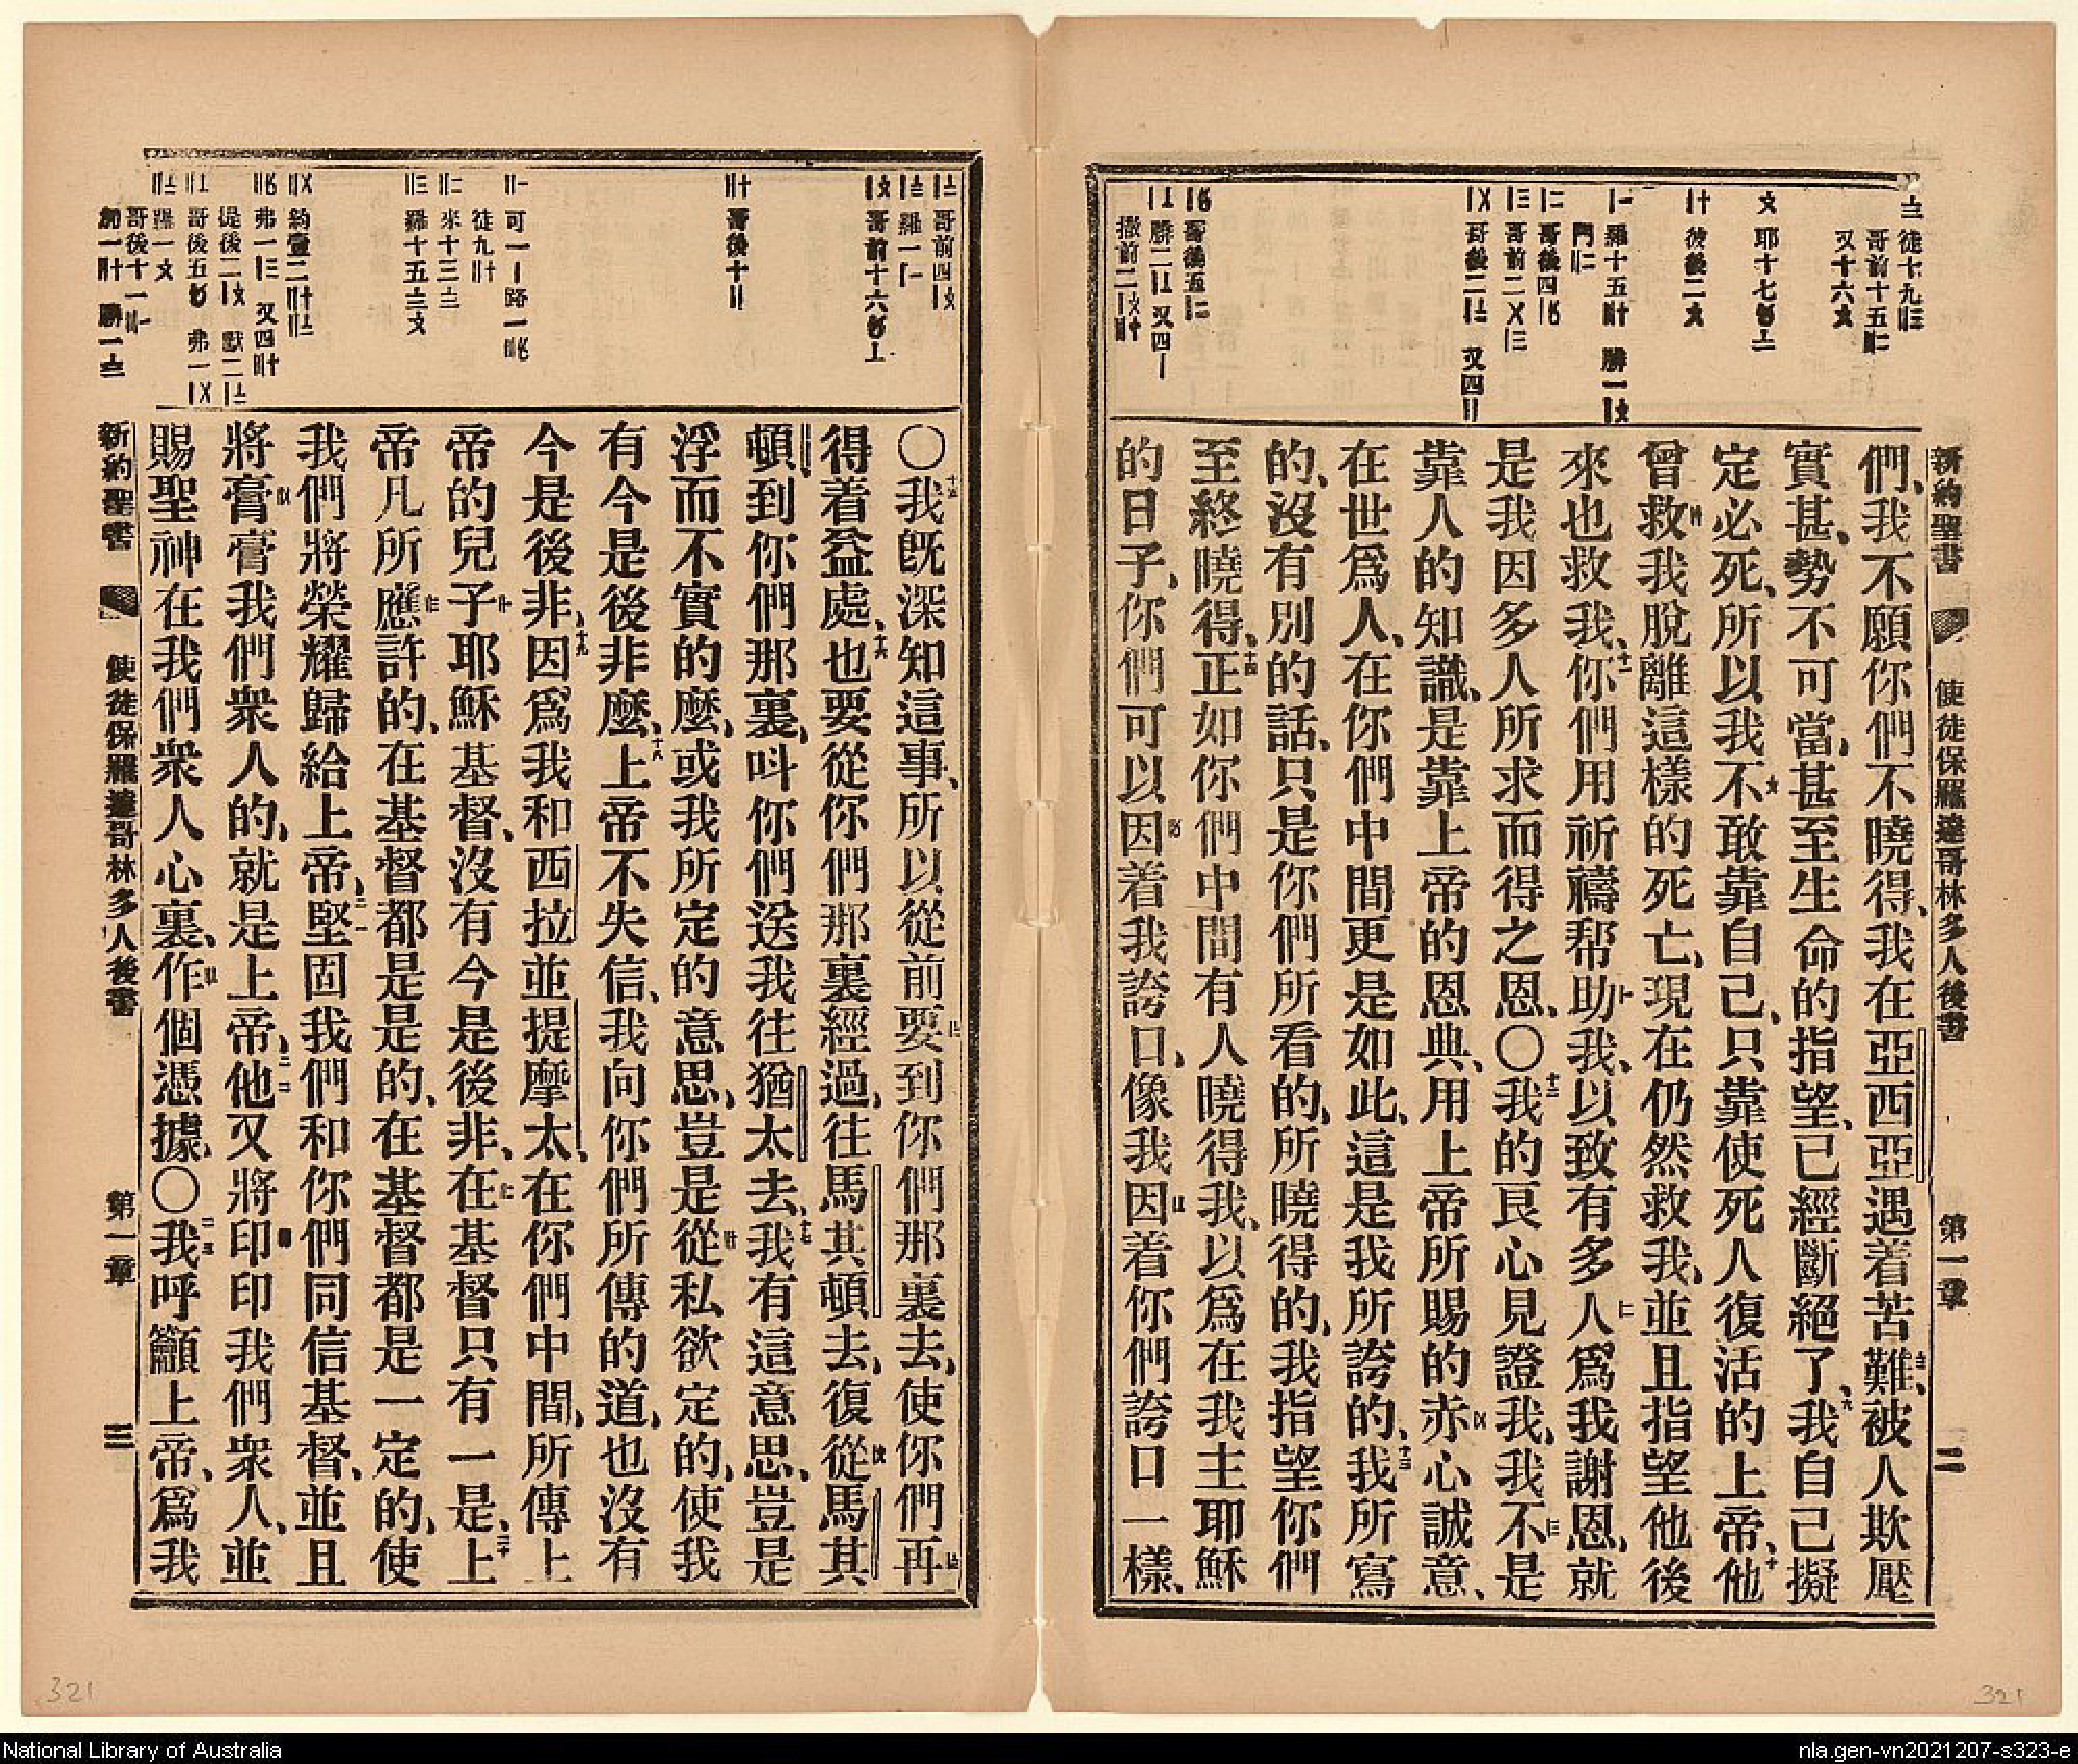 新約聖書
使徒保羅達哥林多人後書
第一章
二
們、我不願你們不曉得、我在亞西亞遇着苦難、被人欺壓
實甚、勢不可當、甚至生命的指望、已經斷絕了、九我自己擬
定必死、所以我不敢靠自己、只靠使死人復活的上帝、十他
曾救我脫離這樣的死亡、現在仍然救我、並且指望他後
來也救我、十一你們用祈禱帮助我、以致有多人爲我謝恩、就
是我因多人所求而得之恩、〇十二我的良心見證我、我不是
靠人的知識、是靠上帝的恩典、用上帝所賜的赤心誠意、
在世爲人、在你們中間更是如此、這是我所誇的、十三我所寫
的、沒有別的話、只是你們所看的、所曉得的、我指望你們
至終曉得、十四正如你們中間有人曉得我、以爲在我主耶穌
的日子、你們可以因着我誇口、像我因着你們誇口一樣、
〇十五我既深知這事、所以從前要到你們那裏去、使你們再
得着益處、十六也要從你們那裏經過、往馬其頓去、復從馬其
頓到你們那裏、呌你們送我往猶太去、十七我有這意思、豈是
浮而不實的麽、或我所定的意思、豈是從私欲定的、使我
有今是後非麽、十八上帝不失信、我向你們所傳的道、也沒有
今是後非、十九因爲我和西拉並提摩太、在你們中間、所傳上
帝的兒子耶穌基督、沒有今是後非、在基督只有一是、二十上
帝凡所應許的、在基督都是是的、在基督都是一定的、使
我們將榮耀歸給上帝、二一堅固我們和你們同信基督、並且
將膏膏我們衆人的、就是上帝、二二他又將印印我們衆人、並
賜聖神在我們衆人心裏、作個憑據、〇二三我呼籲上帝、爲我
新約聖書
使徒保羅達哥林多人後書
第一章
三
321
321
National Library of Australia
nla.gen-vn2021207-s323-e